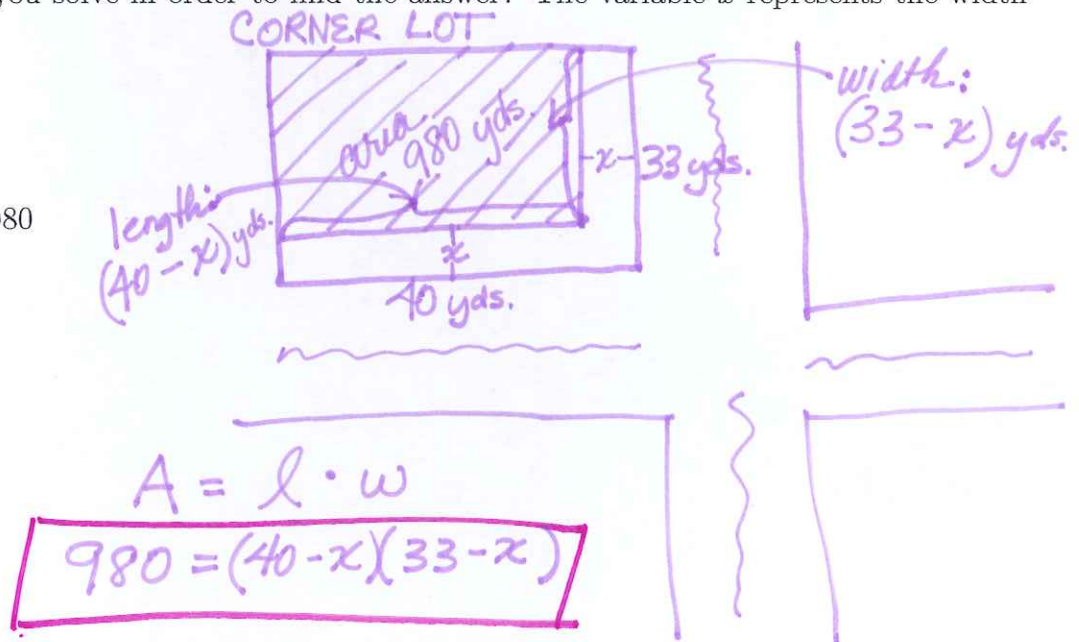 you solve in order to find the answer? The variable x represents the width
CORNER LOT
width:
(33-x) yds.
area
980 yds.
x
33 yds.
80
length:
(40-x) yds.
x
40 yds.
A = l · w
980 = (40-x)(33-x)